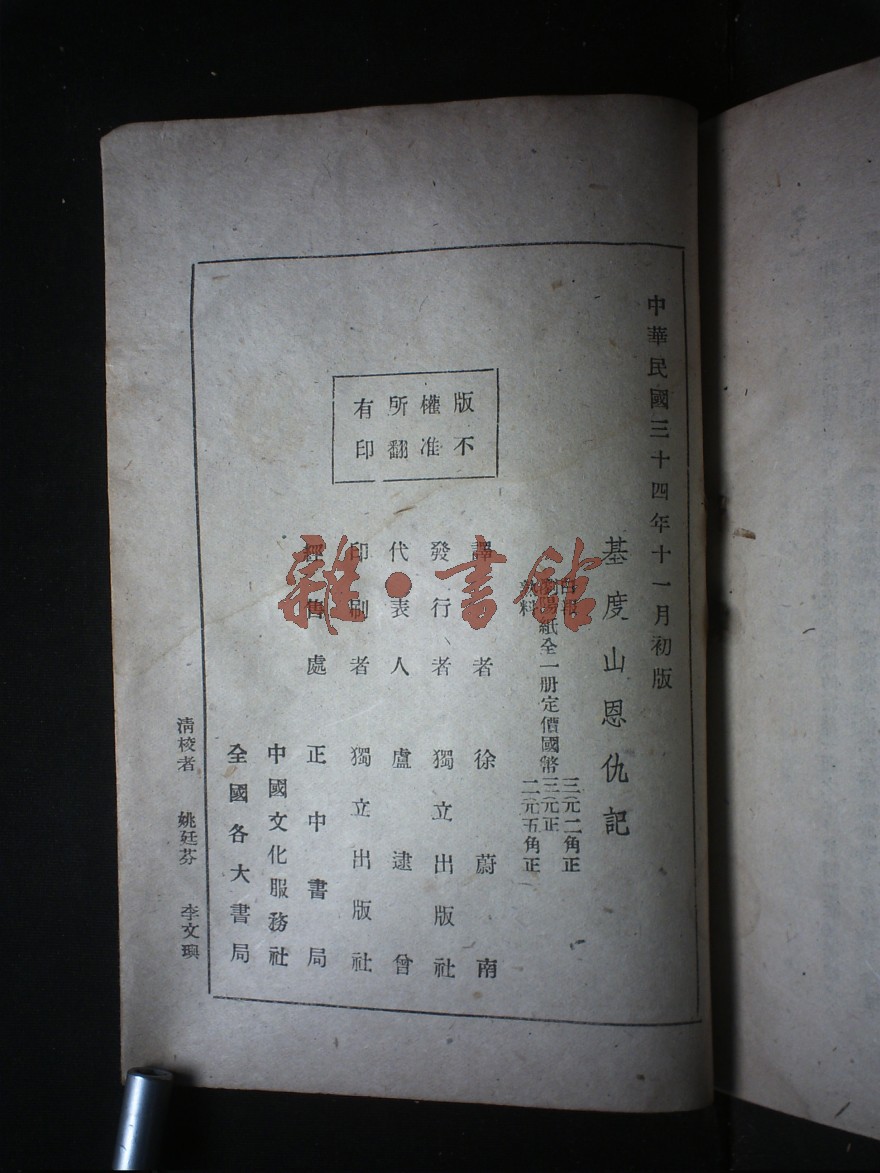 中華民國三十四年十一月初版
基度山恩仇記
白報
瀏陽紙全一册定價國幣
熟料
三元二角正
三元正
二元五角正
譯者 徐蔚南
發行者 獨立出版社
代表人 盧逮曾
印刷者 獨立出版社
經售處 正中書局
中國文化服務社
全國各大書局
版權所有
不准翻印
清校者 姚廷芬 李文璵
雜·書館